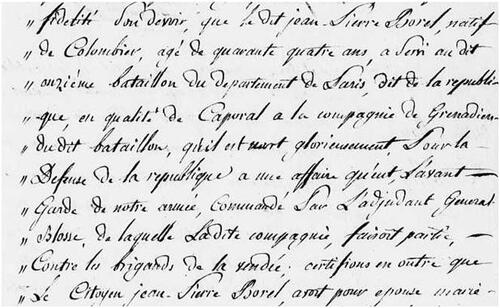 „ fidelité Son devoir, que le dit jean-Pierre Borel, natif
„ de Colombier, agé de quarante quatre ans, a Servi au dit
„ onziéme bataillon du departement de Paris, dit de la republi-
„ que, en qualité de Caporal a la compagnie de Grenadiers
„ du dit bataillon, qu'il est mort glorieusement, Pour la
„ Defense de la republique a une affaire qu'eut L'avant-
„ Garde de notre armée, Commandé Par L'adjudant General
„ Blosse, de laquelle Ladite compagnie, faisoit partie, —
„ Contre les brigands de la vendée; certifions en outre que
„ Le Citoyen jean-Pierre Borel, avoit pour epouse marie-